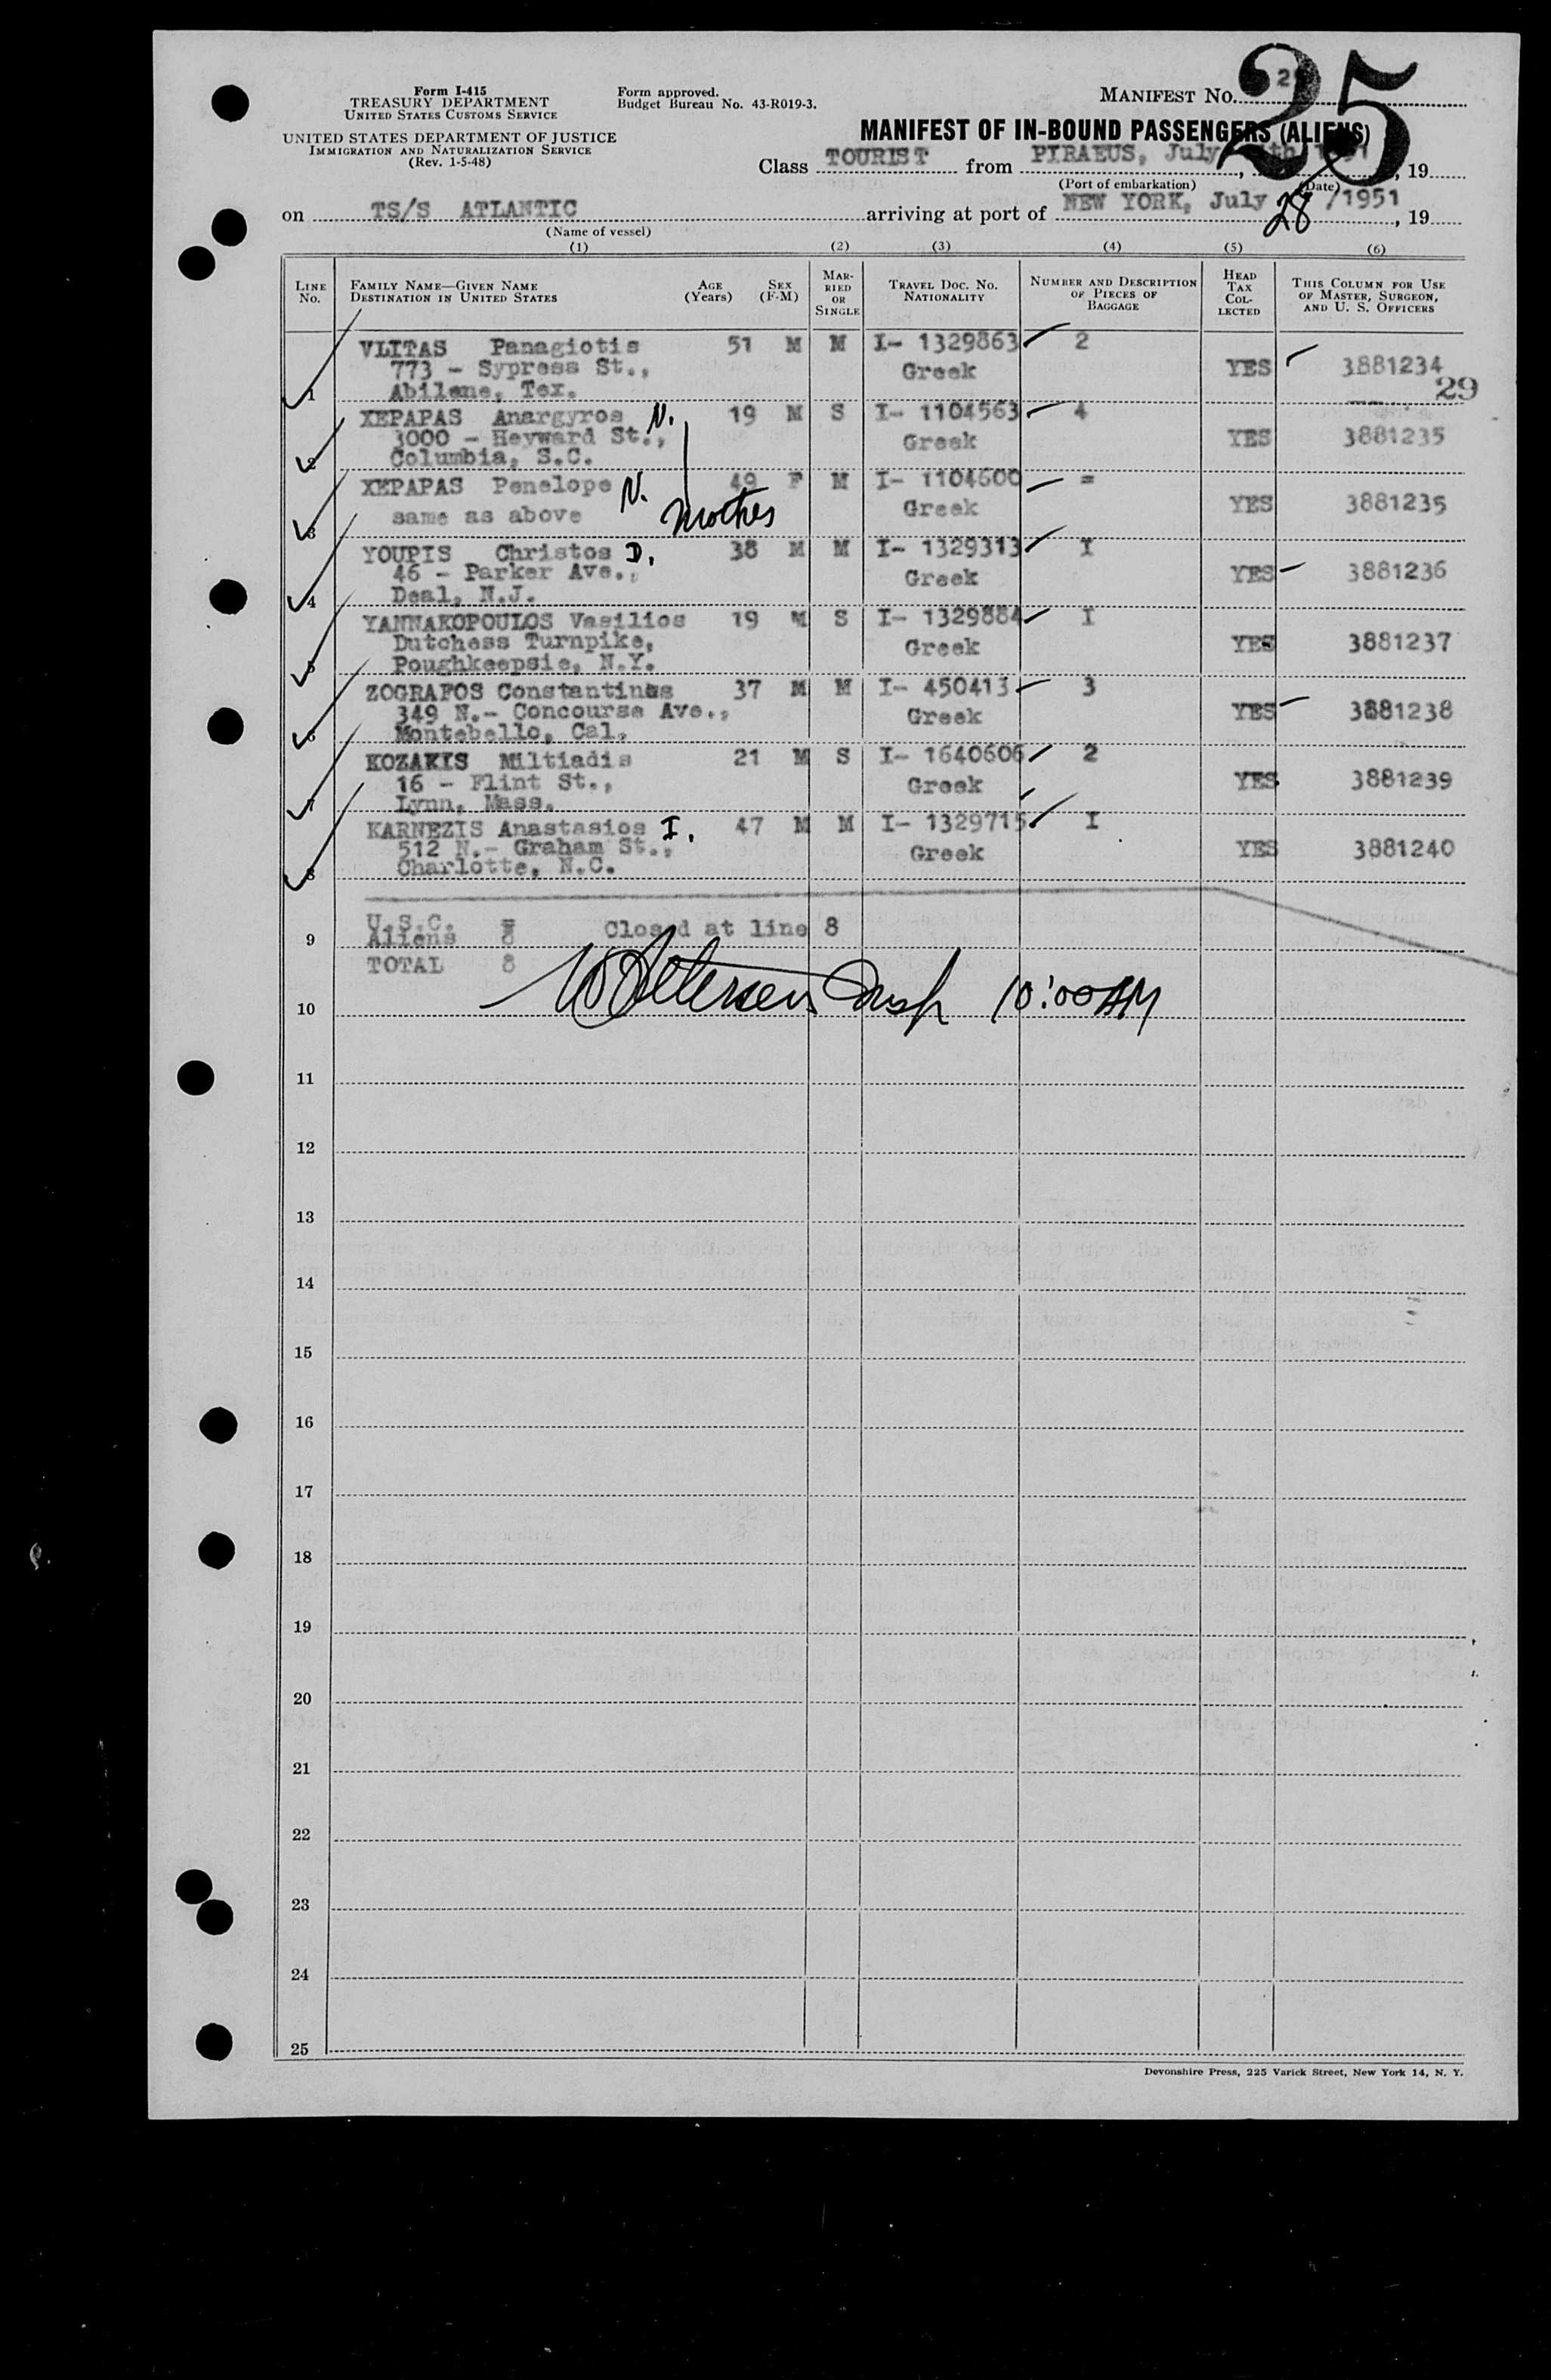 Form I-415
TREASURY DEPARTMENT
UNITED STATES CUSTOMS SERVICE
UNITED STATES DEPARTMENT OF JUSTICE
IMMIGRATION AND NATURALIZATION SERVICE
(Rev. 1-5-48)
Form approved.
Budget Bureau No. 43-R019-3.
MANIFEST NO.
25
MANIFEST OF IN-BOUND PASSENGERS (ALIENS)
Class TOURIST from PIRAEUS, July , 19
(Port of embarkation) (Date)
on TS/S ATLANTIC arriving at port of NEW YORK, July 28 /1951, 19
(Name of vessel)
(1) (2) (3) (4) (5) (6)
LINE NO. FAMILY NAME—GIVEN NAME DESTINATION IN UNITED STATES AGE (Years) SEX (F-M) MARRIED OR SINGLE TRAVEL DOC. NO. NATIONALITY NUMBER AND DESCRIPTION OF PIECES OF BAGGAGE HEAD TAX COLLECTED THIS COLUMN FOR USE OF MASTER, SURGEON, AND U. S. OFFICERS
1 VLITAS Panagiotis 51 M M I- 1329863 2
773 - Sypress St., Greek YES 3881234
Abilene, Tex. 29
2 XEPAPAS Anargyros N. 19 M S I- 1104563 4
3000 - Heyward St., Greek YES 3881235
Columbia, S.C.
3 XEPAPAS Penelope N. 49 F M I- 1104600 =
same as above Mother Greek YES 3881235
4 YOUPIS Christos D. 38 M M I- 1329313 I
46 - Parker Ave., Greek YES 3881236
Deal, N.J.
5 YANNAKOPOULOS Vasilios 19 M S I- 1329884 I
Dutchess Turnpike, Greek YES 3881237
Poughkeepsie, N.Y.
6 ZOGRAFOS Constantinos 37 M M I- 450413 3
349 N.- Concourse Ave., Greek YES 3881238
Montebello, Cal.
7 KOZAKIS Miltiadis 21 M S I- 1640606 2
16 - Flint St., Greek YES 3881239
Lynn, Mass.
8 KARNEZIS Anastasios I. 47 M M I- 1329715 I
512 N.- Graham St., Greek YES 3881240
Charlotte, N.C.
U.S.C. = Closed at line 8
9 Aliens 8
TOTAL 8
10 10:00 AM
11
12
13
14
15
16
17
18
19
20
21
22
23
24
25
Devonshire Press, 225 Varick Street, New York 14, N. Y.